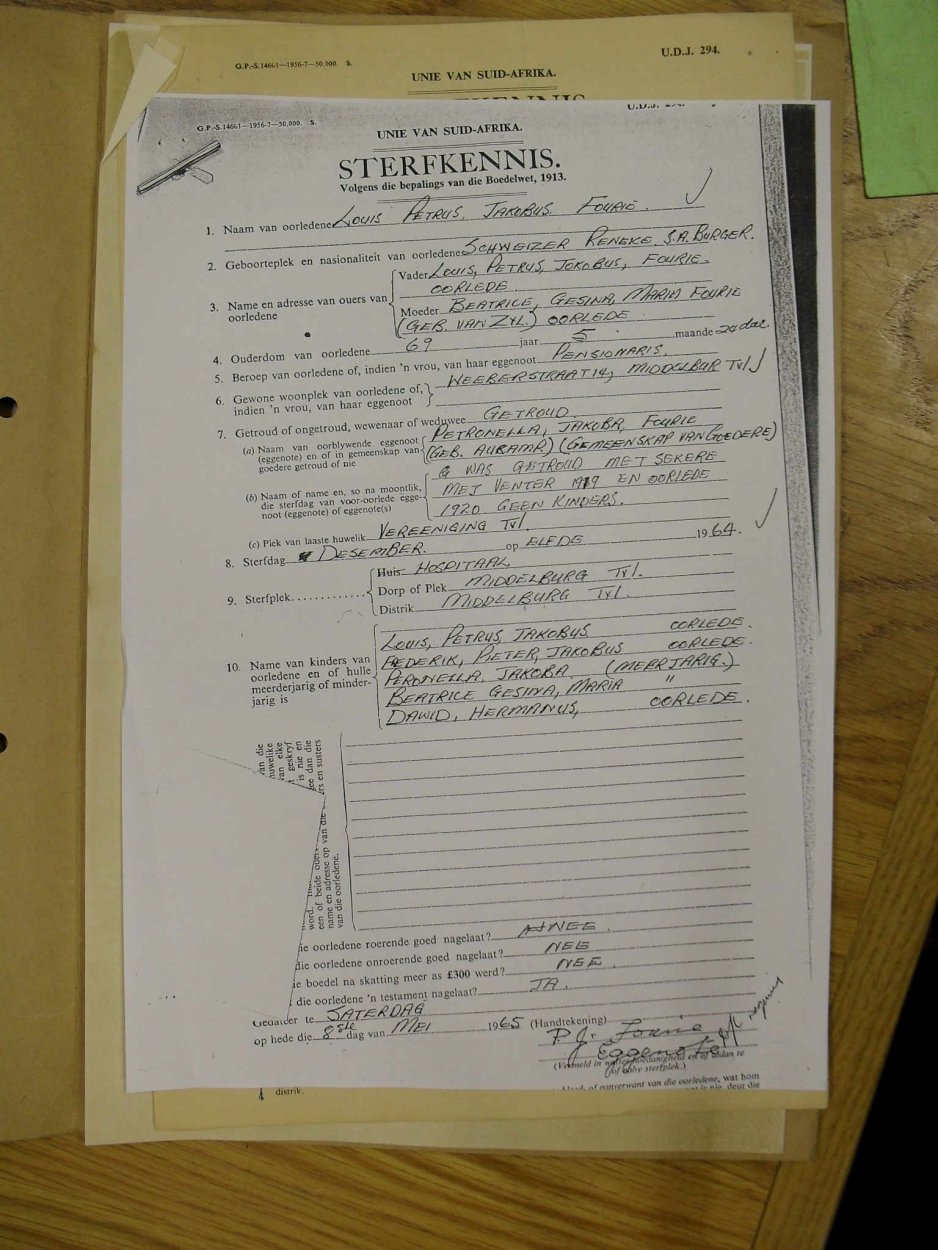 G.P.-S.14661—1956-7—50,000. S.
U.D.J. 294.
UNIE VAN SUID-AFRIKA.
G.P.-S.14661—1956-7—50,000. S.
UNIE VAN SUID-AFRIKA.
STERFKENNIS.
Volgens die bepalings van die Boedelwet, 1913.
1. Naam van oorledene LOUIS PETRUS, JAKOBUS. FOURIE.
2. Geboorteplek en nasionaliteit van oorledene SCHWEIZER RENEKE. S.A. BURGER.
3. Name en adresse van ouers van oorledene
Vader LOUIS, PETRUS, JOKOBUS, FOURIE.
OORLEDE
Moeder BEATRICE, GESINA, MARIA FOURIE
(GEB. VAN ZYL.) OORLEDE
4. Ouderdom van oorledene 69 jaar 5 maande 24 dae.
5. Beroep van oorledene of, indien 'n vrou, van haar eggenoot PENSIONARIS.
6. Gewone woonplek van oorledene of, WEEBERSTRAAT 14, MIDDELBUR Tvl
indien 'n vrou, van haar eggenoot
7. Getroud of ongetroud, wewenaar of weduwee GETROUD.
(a) Naam van oorblywende eggenoot PETRONELLA, JAKOBA, FOURIE
(eggenote) en of in gemeenskap van (GEB. AUKAMP) (GEMEENSKAP VAN GOEDERE)
goedere getroud of nie
& WAS GETROUD MET SEKERE
(b) Naam of name en, so na moontlik, MEJ VENTER 1919 EN OORLEDE
die sterfdag van voor-oorlede egge-
noot (eggenote) of eggenote(s) 1920 GEEN KINDERS.
(c) Plek van laaste huwelik VEREENIGING Tvl
8. Sterfdag DESEMBER. op ELFDE 1964.
9. Sterfplek
Huis HOSPITAAL
Dorp of Plek MIDDELBURG Tvl.
Distrik MIDDELBURG Tvl.
10. Name van kinders van
oorledene en of hulle
meerderjarig of minder-
jarig is
LOUIS, PETRUS, JAKOBUS OORLEDE.
FREDERIK, PIETER, JAKOBUS OORLEDE.
PERONELLA, JAKOBA (MEERJARIG.)
BEATRICE GESINA, MARIA "
DAWID, HERMANUS, OORLEDE.
van die
huwelike
van elke
geskryf
is nie en
dan die
en susters
word.
een of beide ouers
name en adresse op van die
van die oorledene.
die oorledene roerende goed nagelaat? NEE
die oorledene onroerende goed nagelaat? NEE
ie boedel na skatting meer as £300 werd? NEE
die oorledene 'n testament nagelaat? JA.
Gedateer te SATERDAG
op hede die 8ste dag van MEI 1965 (Handtekening) P.J. Fourie
Eggenote
(Vermeld in watter hoedanigheid en of aldan te
of naby sterfplek.)
of aanverwant van die oorledene, wat hom
distrik.